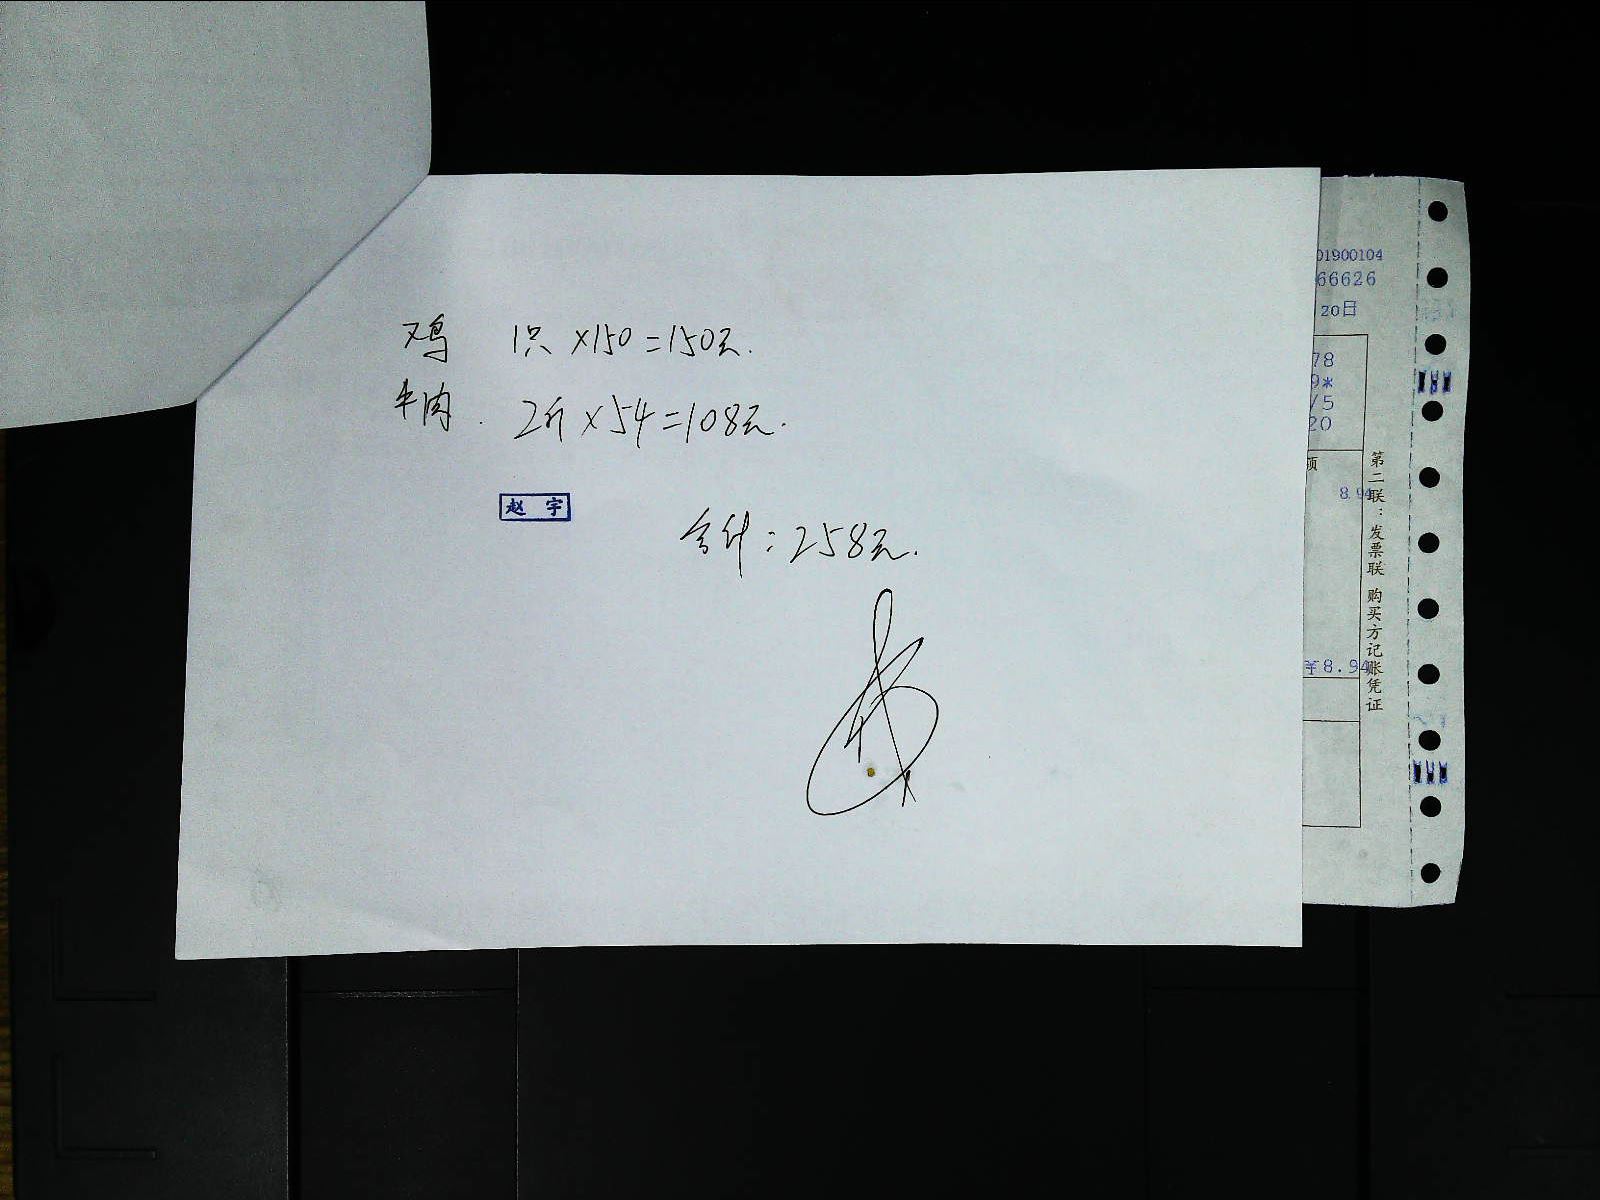 鸡 1只×150=150元.
牛肉. 2斤×54=108元.
赵 宇
合计:258元.
01900104
66626
20日
78
9*
/5
20
额
8.94
¥8.94
第二联:发票联 购买方记账凭证